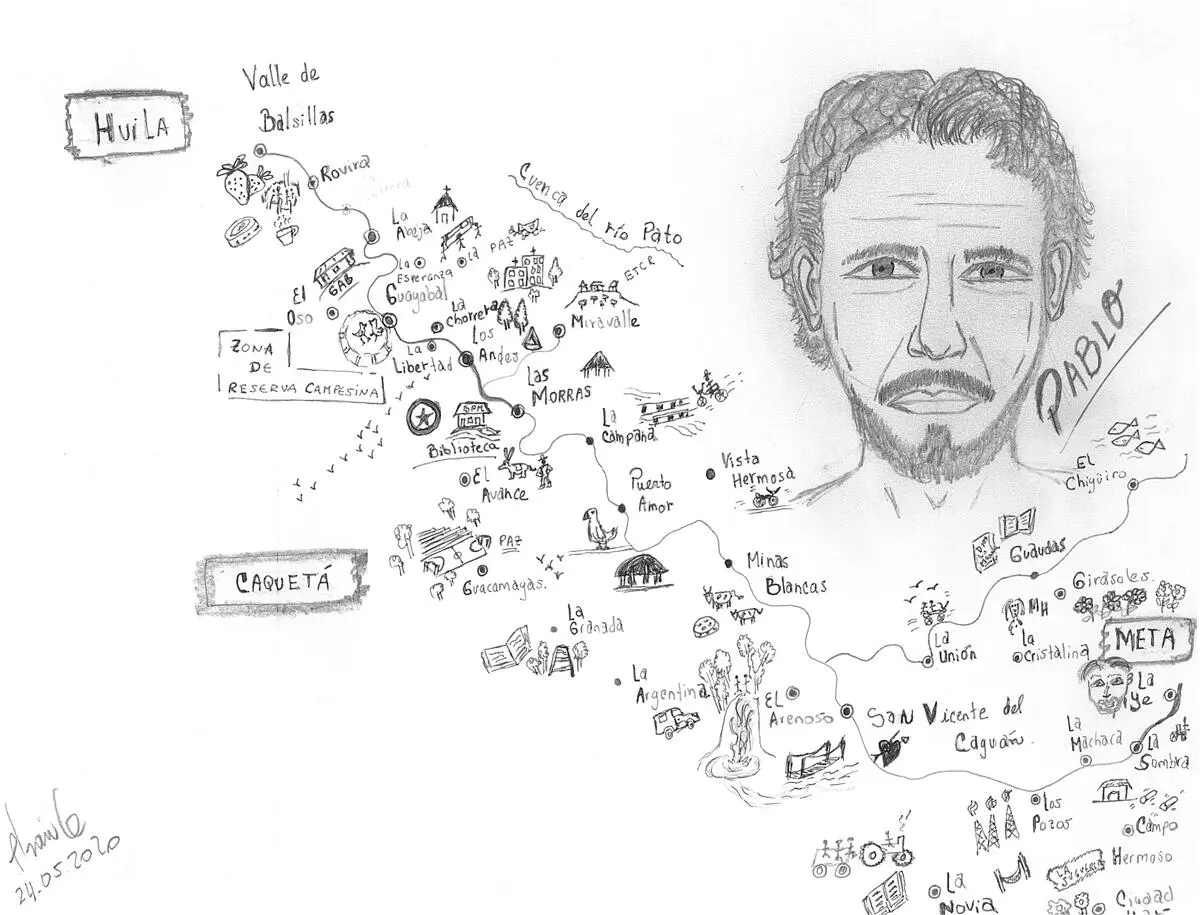 Valle de
Balsillas
HuiLA
Rovira
La
Abeja
Cuenca del río Pato
PAZ
La
Esperanza
La
ETCR
GAB
Guayabal
El
Oso
La
Chorrera
Miravalle
ZONA
DE
RESERVA CAMPESINA
La
Libertad
Los
Andes
Las
MORRAS
PABLO
BPM
Biblioteca
La
Campana
El
Avance
Vista
Hermosa
Puerto
Amor
El
Chigüiro
PAZ
Guacamayas.
CAQUETÁ
Minas
Blancas
Guaudas
Girasoles.
MH
La
Granada
La
Unión
La
Cristalina
META
La
Argentina
EL
Arenoso
San Vicente del
Caguán.
La
Ye
La
Machaca
La
Sombra
Los
Pozos
Campo
Hermoso
La
Novia
Ciudad
24.05.2020